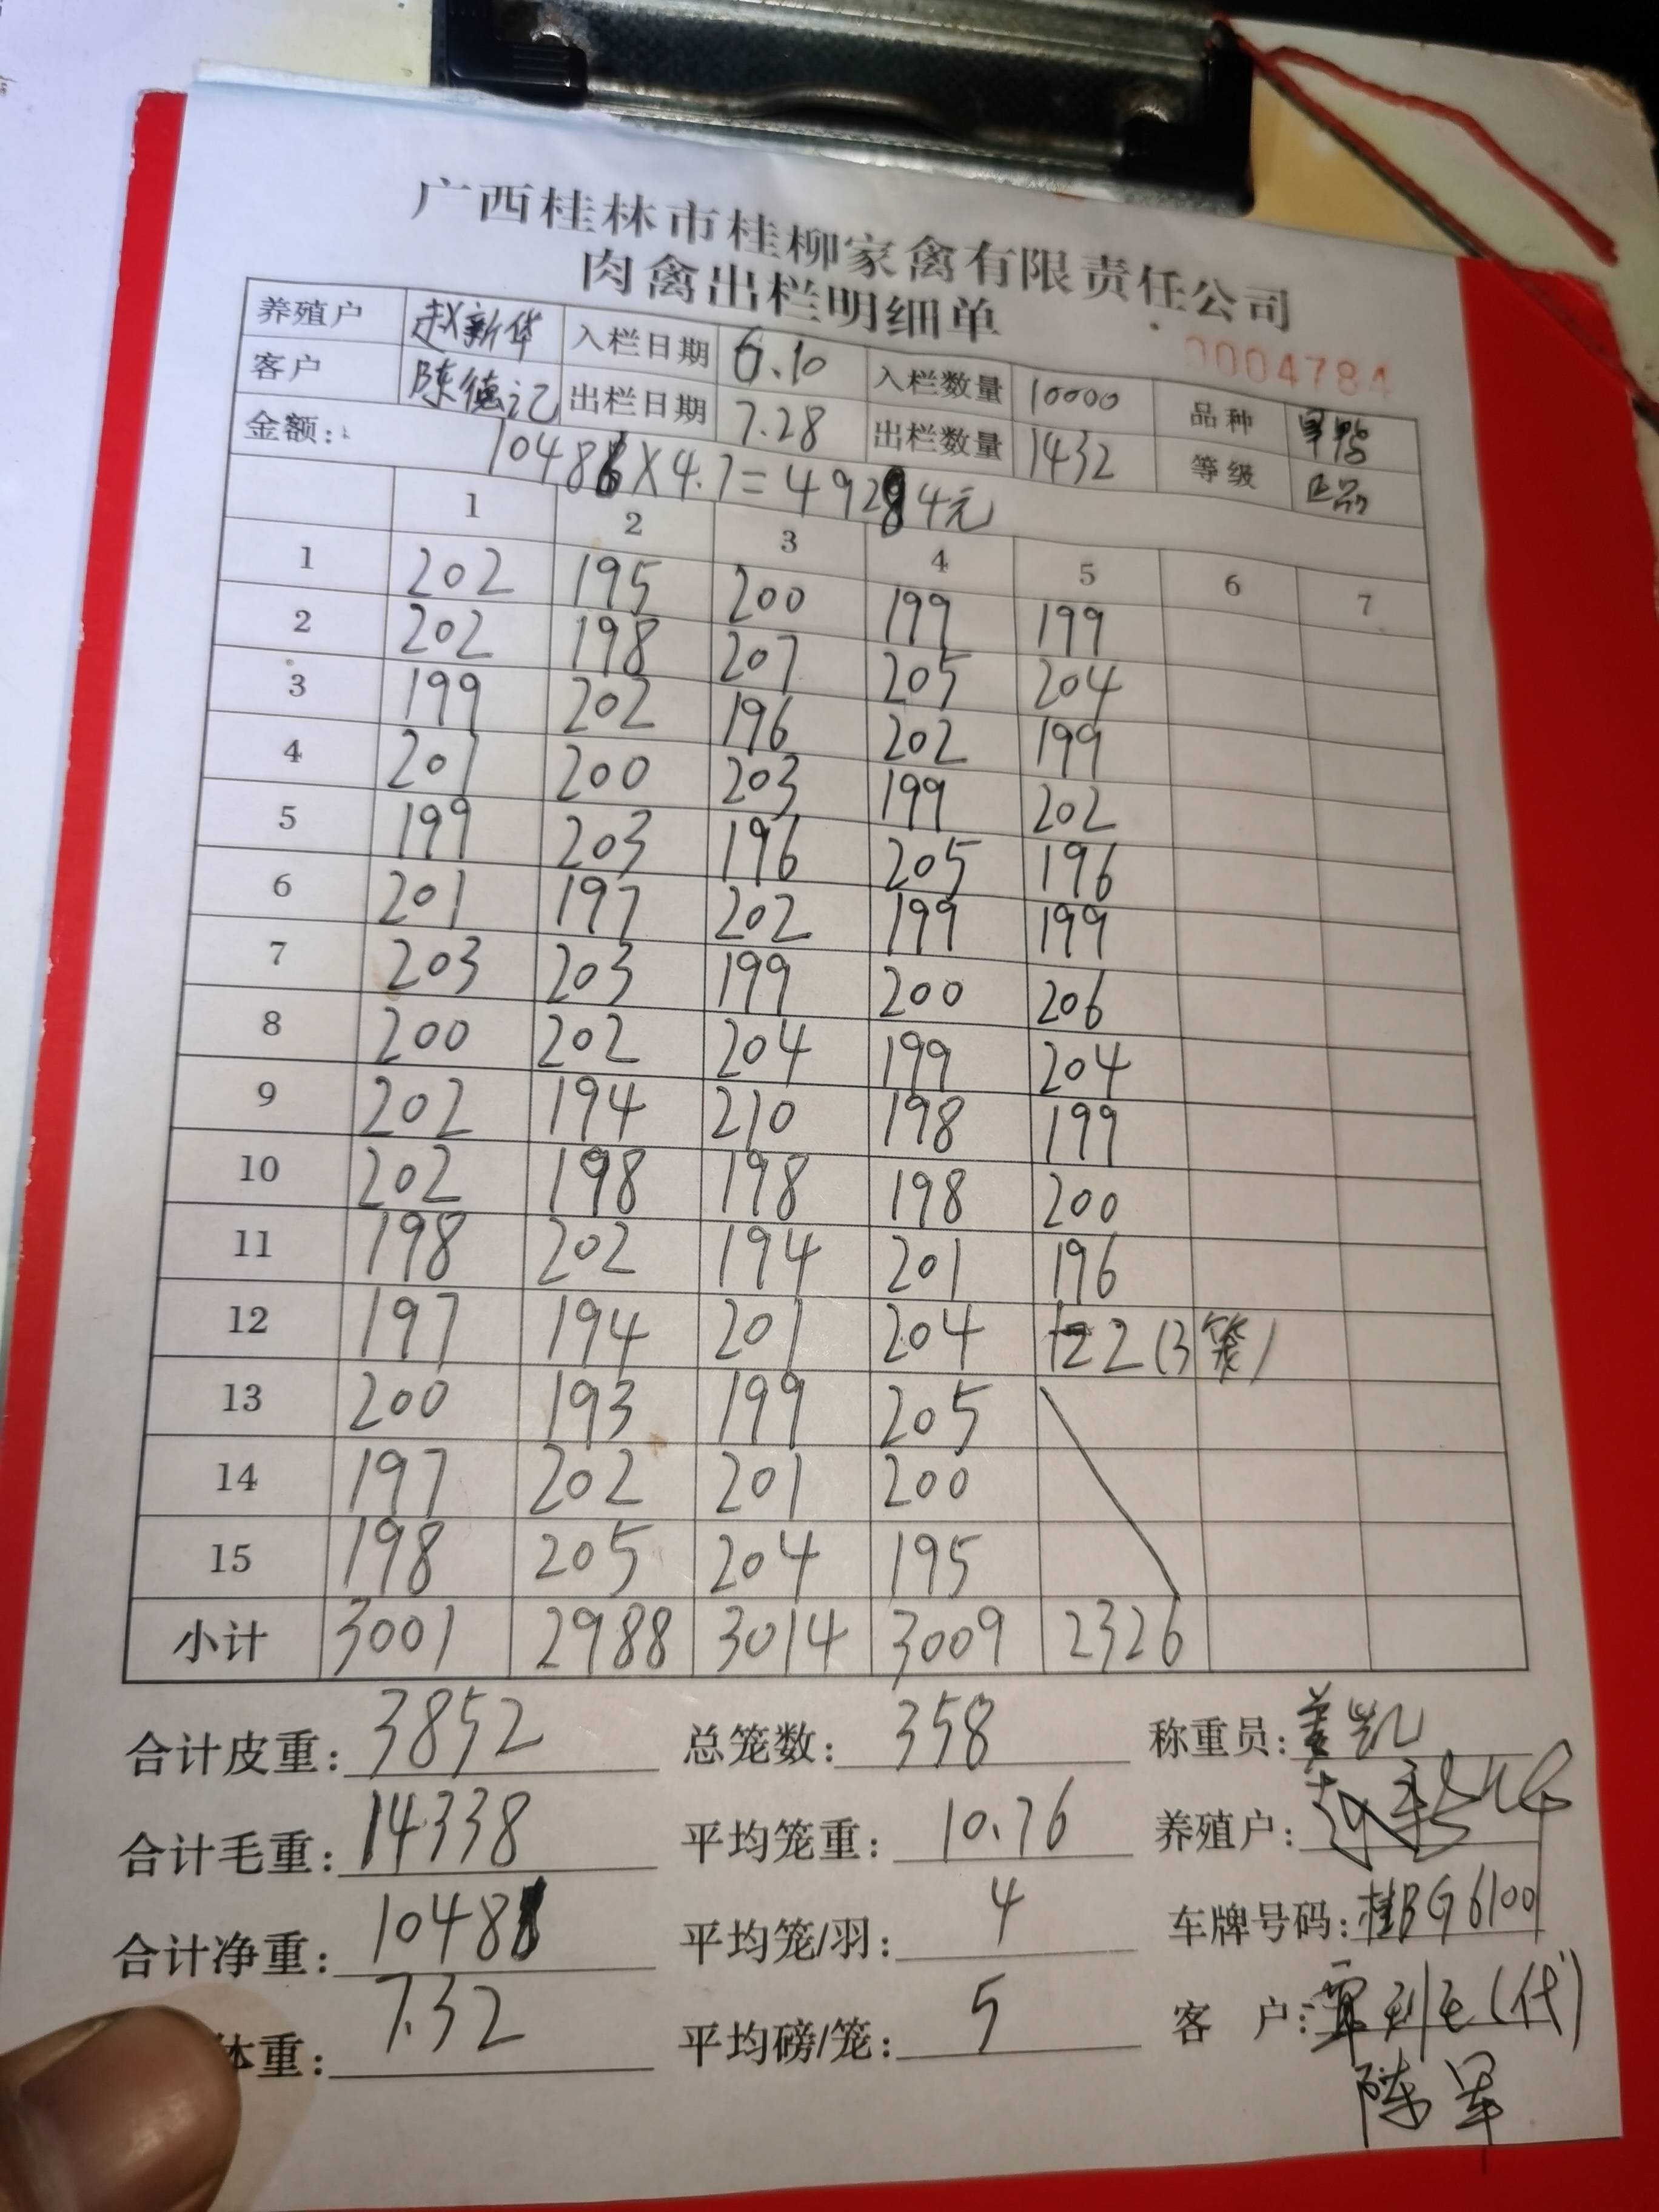 广西桂林市桂柳家禽有限责任公司
肉禽出栏明细单
0004784
养殖户 赵新华 入栏日期 6.10 入栏数量 10000 品种
客户 陈德记 出栏日期 7.28 出栏数量 1432 等级
金额: 10486×4.7=49284元
1 2 3 4 5 6 7
1 202 195 200 199 199
2 202 198 207 205 204
3 199 202 196 202 199
4 201 200 203 199 202
5 199 203 196 205 196
6 201 197 202 199 199
7 203 203 199 200 206
8 200 202 204 199 204
9 202 194 210 198 199
10 202 198 198 198 200
11 198 202 194 201 196
12 197 194 201 204 122(3笼)
13 200 193 199 205
14 197 202 201 200
15 198 205 204 195
小计 3001 2988 3014 3009 2326
合计皮重: 3852 总笼数: 358 称重员:
合计毛重: 14338 平均笼重: 10.76 养殖户:
合计净重: 10486 平均笼/羽: 4 车牌号码: 桂BG6100
体重: 7.32 平均磅/笼: 5 客 户: (代)
陈军